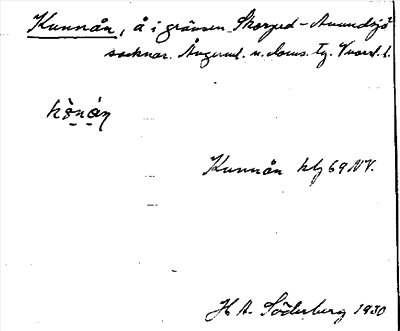 Kunnån, å i gränsen Skorped - Anundsjö
socknar. Ångerml. n. doms. Tg. V. norrl. l.
kònán
Kunnån ktg 69 NV.
H A. Söderberg 1930